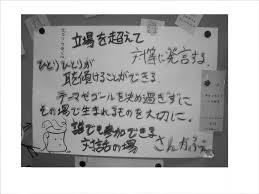 立場を超えて
対等に発言する。
ひとりひとりが
耳を傾けることができる
テーマやゴールを決め過ぎずに
その場で生まれるものを大切に。
誰でも参加できる
対話の場
さんかふぇ